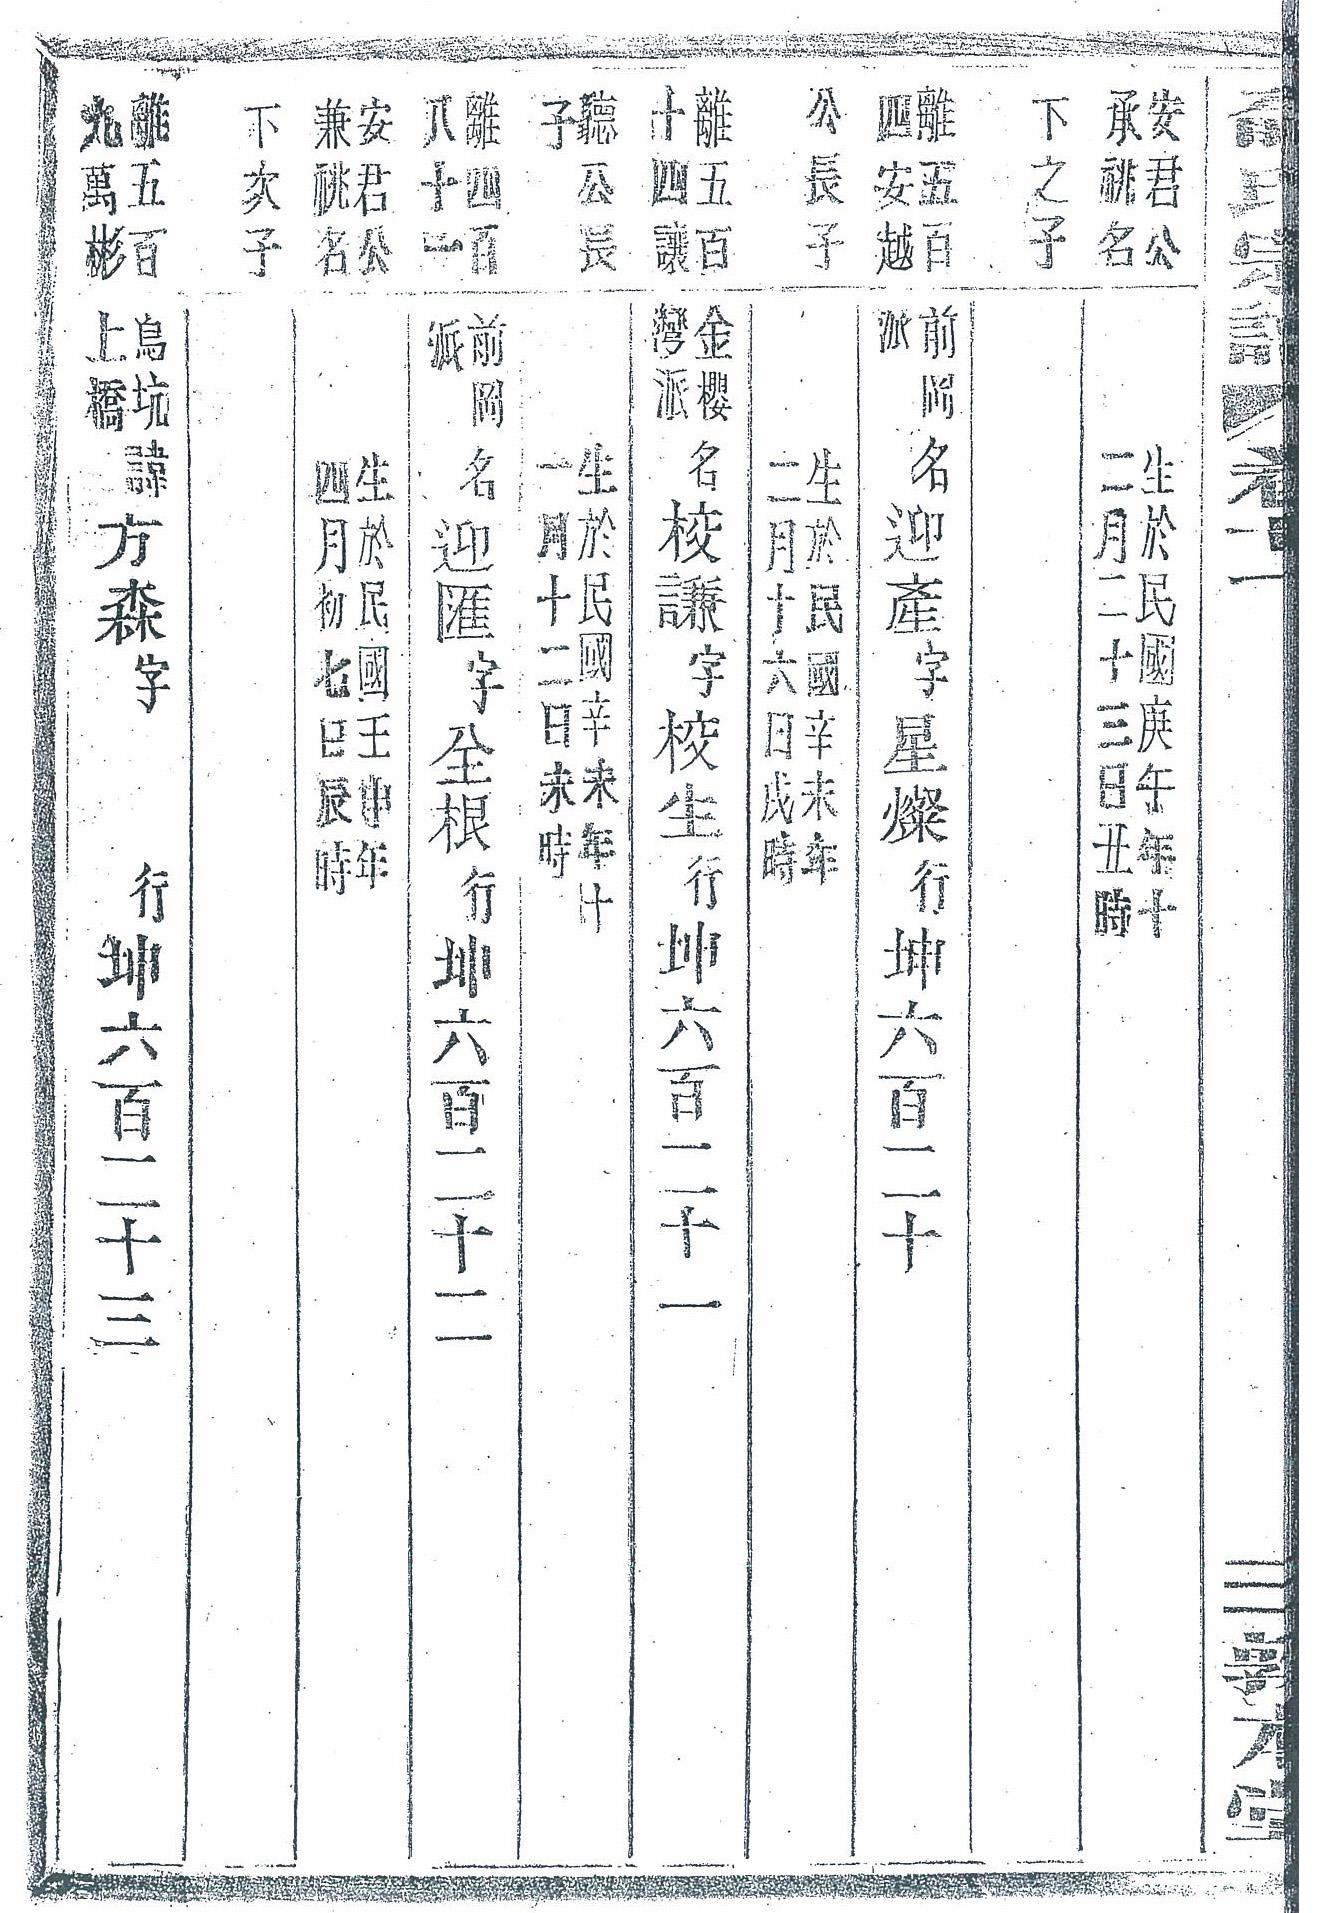 氏宗譜 卷十一 三 敦本堂
安君公
承祧名
生於民國庚午年十
二月二十三日丑時
下之子
離五百
四安越
前岡
派
名迎產字星燦行坤六百二十
公長子
生於民國辛未年
二月十六日戌時
離五百
十四讓
金櫻
灣派
名校謙字校生行坤六百二十一
聽公長
子
生於民國辛未年十
一月十二日未時
離四百
八十一
前岡
派
名迎匯字全根行坤六百二十二
安君公
兼祧名
生於民國壬申年
四月初七日辰時
下次子
離五百
九萬彬
烏坑
上橋
諱方森字 行坤六百二十三